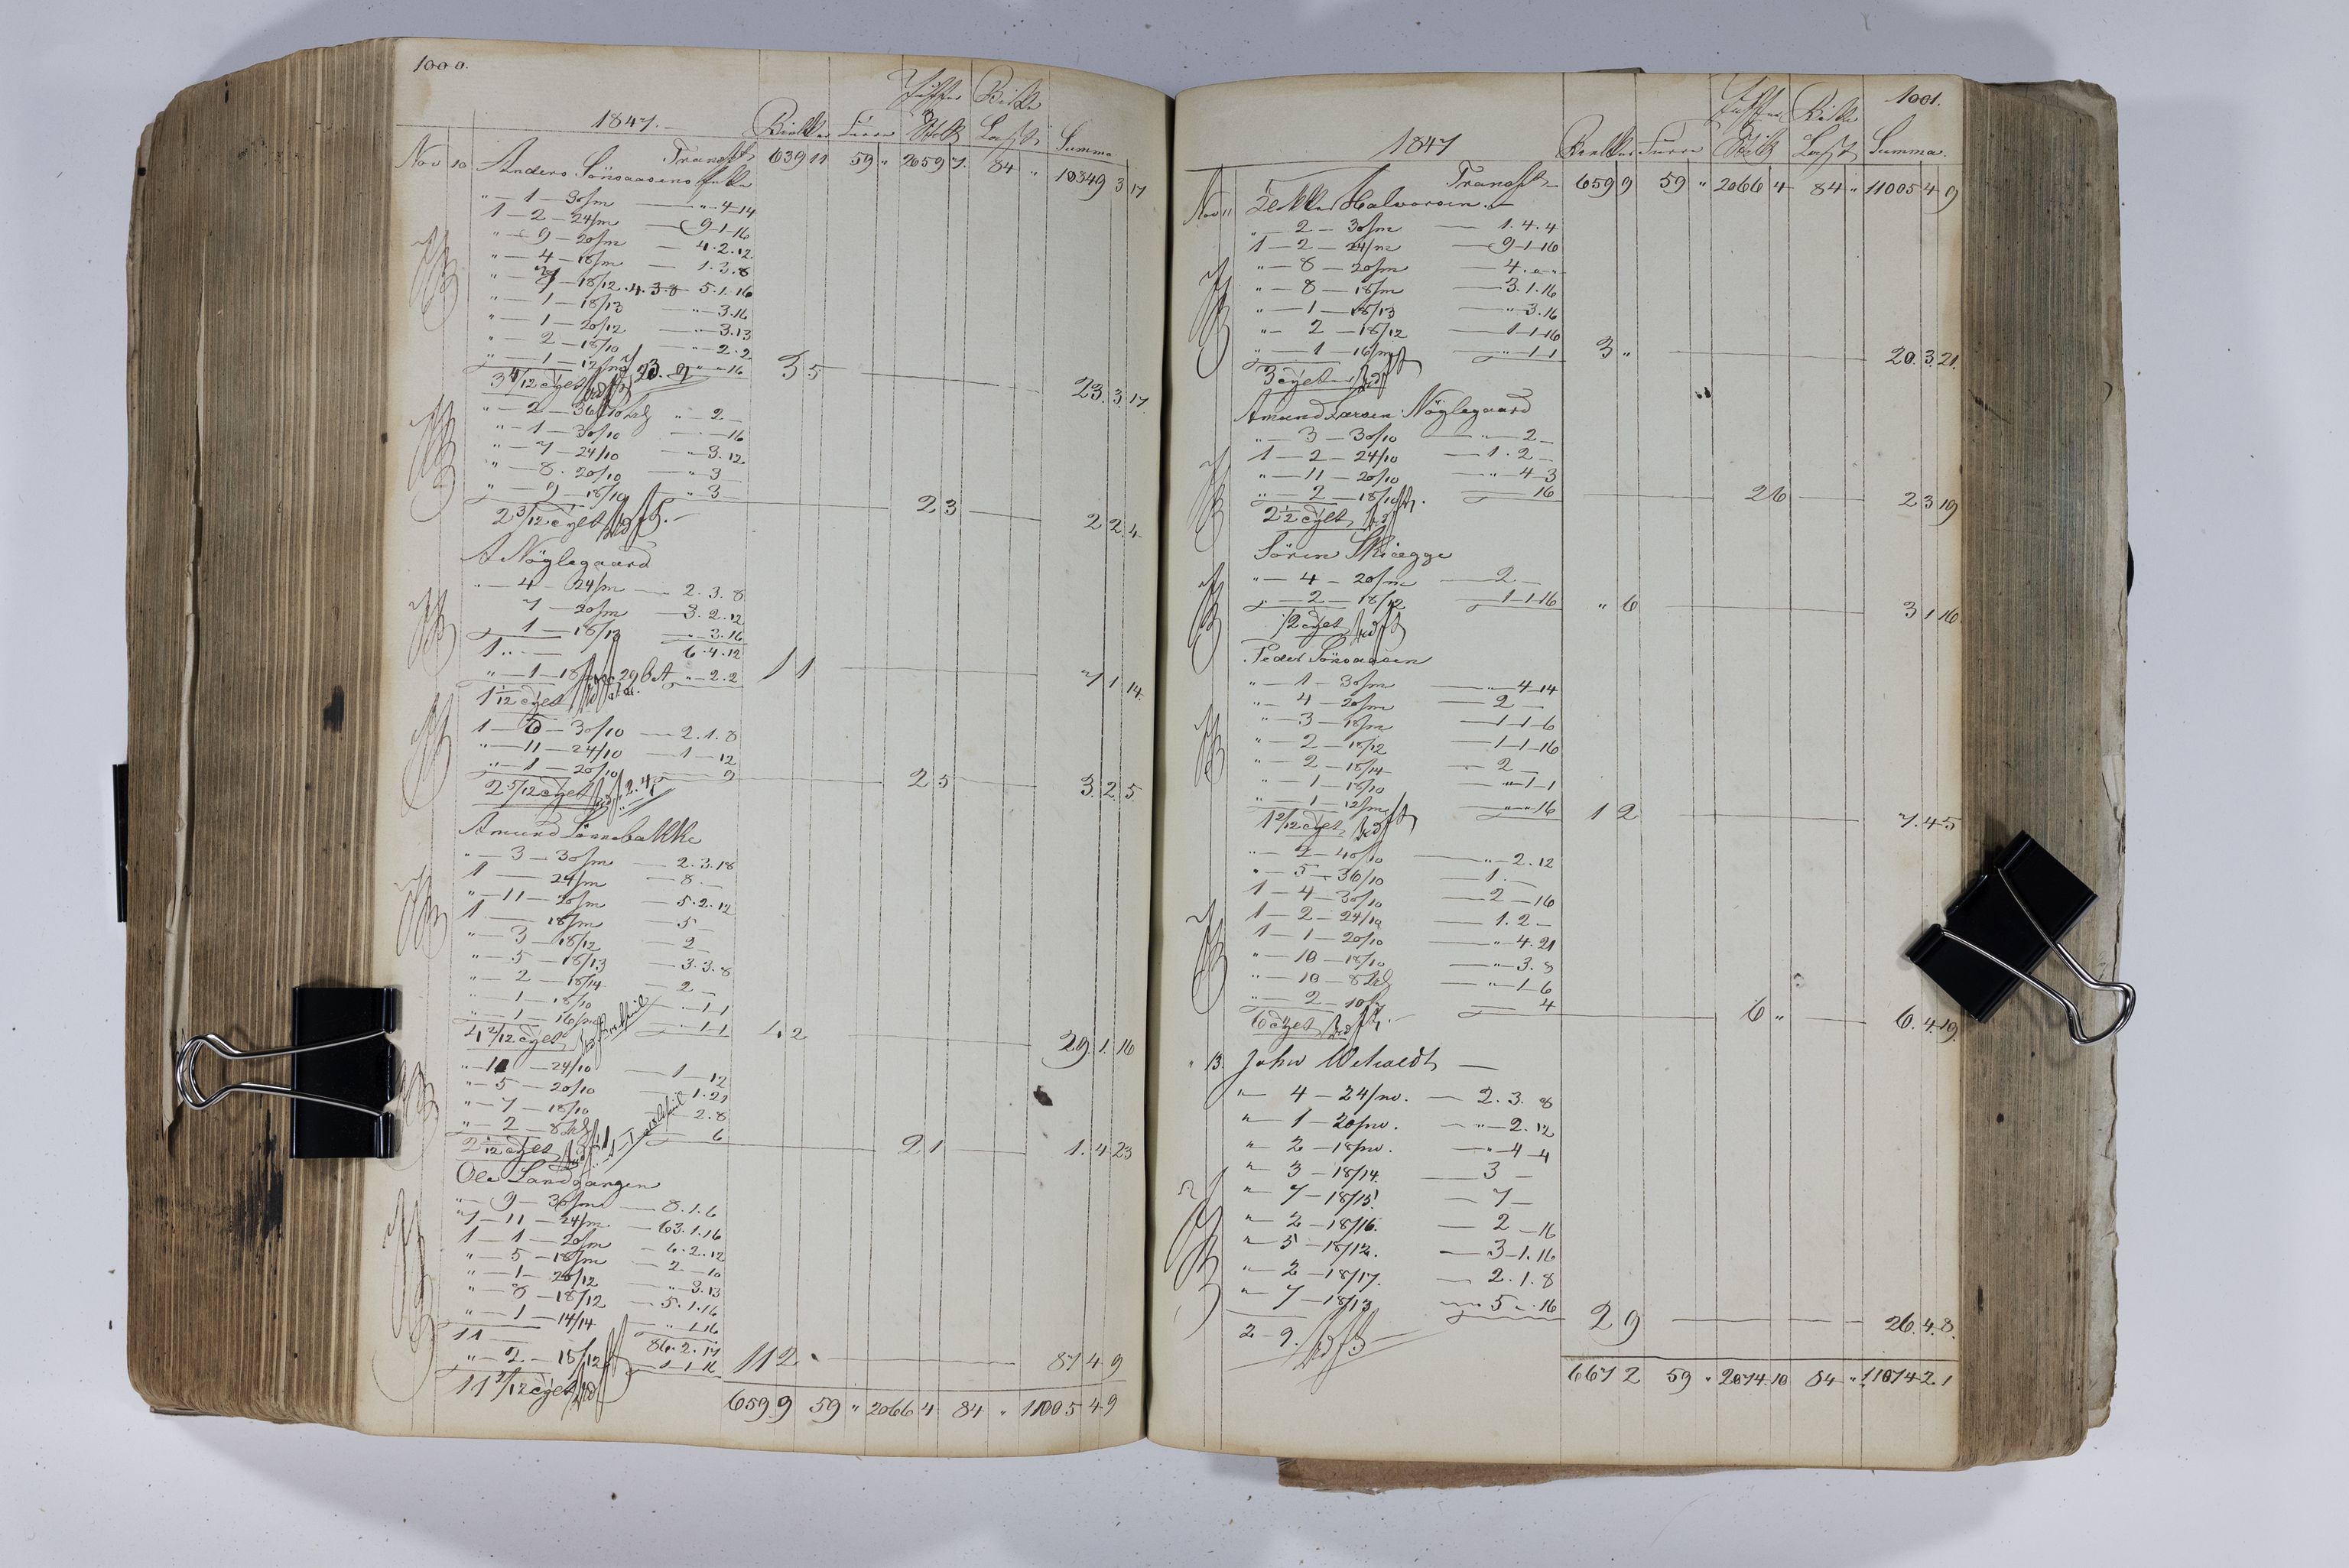 1000.
1847. Bielker Furu Juffer & Stolt Birke Last Summa
Nov 10 Transpt 639 11 59 " 2059 7. 84 " 10349 3 17
Anders Sönsaasens
" — 1 — 30/m — " — 4 — 14
1 — 2 — 24/m — 9 — 1 — 16
" — 9 — 20/m — 4. 2. 12.
" — 4 — 18/m — 1. 3. 8
" — 7 — 18/12 . 4. 3. 8 5. 1. 16
" — 1 — 18/13 — " — 3. 16
" — 1 — 20/12 — " — 3. 13
" — 2 — 18/10 — " — 2. 2
" — 1 — 12/m — " — " — 16 3 5 23. 3. 17
3 5/12 cylt
" — 2 — 36/10 " — 2 —
" — 1 — 30/10 — 16
" — 7 — 24/10 — " 3. 12
" — 8. 20/10 — " 3 —
" — 9 — 18/10 — " 3 — 2 3 2 2. 4
2 3/12 cylt
A Nöglegaard
" — 4 — 24/m — 2. 3. 8
7 — 20/m — 3. 2. 12
1 — 18/13 — " — 3. 16
1 " — 6. 4. 12
" — 1 — 18/ " — 2. 2 1 1 7 1 14
1 1/12 cylt
1 — 6 — 30/10 — 2. 1. 8
" — 11 — 24/10 — 1 — 12
" — 1 — 20/10 9 2 5 3. 2. 5
2 5/12 cylt
Amund Sönnebakke
" — 3 — 30/m — 2. 3. 18
1 — 24/m — 8. —
" — 11 — 20/m — 5. 2. 12
1 — 18/m — 5 —
" — 3 — 18/12 — 2 —
" — 5 — 18/13 — 3. 3. 8
" — 2 — 18/14 — 2 —
" — 1 — 18/10 — " — 1 1
" — 1 — 16/m — " — 1 1 4 2 29. 1. 16
4 2/12 cylt
" — 11 — 24/10 — 1 — 12
" — 5 — 20/10 — 1. 21
" — 7 — 18/10 — 2. 8
" — 2 — 8 6 2 1 1. 4 23
2 1/12 cylt
Ole Landgangen
" — 9 — 30/m — 8. 1. 6
7 — 11 — 24/m — 63. 1. 16
1 — 1 — 20/m — 6. 2. 12
" — 5 — 18/m — 2 — 10
" — 1 — 20/12 — " 3. 13
" — 8 — 18/12 — 5. 1. 16
" — 1 — 14/14 — " — 1 16
11 — 86. 2. 17
" — 2 — 15/12 — 1 — 1 16 11 2 87 4 9
11 2/12 cylt
659 9 59 " 2066 4 84 " 11005 4 9
1001.
1847 Bielker Furu Juffer & Stolt Birke Last Summa.
Transpt — 659 9 59 " 2066 4 84 " 11005 4 9
Nov 11 Halvorsen. —
" — 2 — 30/m — 1. 4. 4
1 — 2 — 24/m — 9 — 1 — 16
" — 8 — 20/m — 4. " — "
" — 8 — 18/m — 3. 1. 16
" — 1 — 18/13 — " — 3. 16
" — 2 — 18/12 — 1 — 1 — 16
" — 1 — 16/m — " — 1 1 3 " 20. 3. 21.
3 cylt
Amund Larsen Nöglegaard
" — 3 — 30/10 — " — 2 —
1 — 2 — 24/10 — 1. 2 —
" — 11 — 20/10 — " — 4 — 3
" — 2 — 18/10 — 16 2 6 2 3 19
2 1/2 cylt
Sören Skiegge
" — 4 — 20/m — 2 —
" — 2 — 18/12 — 1 — 1 — 16 " 6 3 1 16.
1/2 cylt
Peder Sönsaasen
" — 1 — 30/m — " — 4 — 14
" — 4 — 20/m — 2 —
" — 3 — 18/m — 1 — 1 — 6
" — 2 — 18/12 — 1 — 1 — 16
" — 2 — 18/14 — 2 —
" — 1 — 18/10 — " — 1 — 1
" — 1 — 12/m — " — " — 16 1 2 7. 4 5
1 2/12 cylt
" — 2 — 40/10 — " — 2. 12
" — 5 — 36/10 — 1. —
1 — 4 — 30/10 — 2 — 16
1 — 2 — 24/10 — 1. 2 —
1 — 1 — 20/10 — " 4. 21
" — 10 — 18/10 — " — 3. 8
" — 10 — 8 — " — 1 — 6
" — 2 — 10/ — 4 6 " 6. 4. 19.
6 cylt
" 13. John Wehaldt —
" — 4 — 24/m. — 2. 3. 8
" — 1 — 20/m. — " — 2. 12
" — 2 — 18/m. — " 4 — 4
" — 3 — 18/14. — 3 —
" — 7 — 18/15. — 7 —
" — 2 — 18/16. — 2 — 16
" — 5 — 18/12. — 3 — 1. 16
" — 2 — 18/17. — 2. 1. 8
" — 7 — 18/13 — 5 — . 16 2 9 26. 4. 8.
2 — 9.
667 2 59 " 2074 10 84 " 11074 2 1